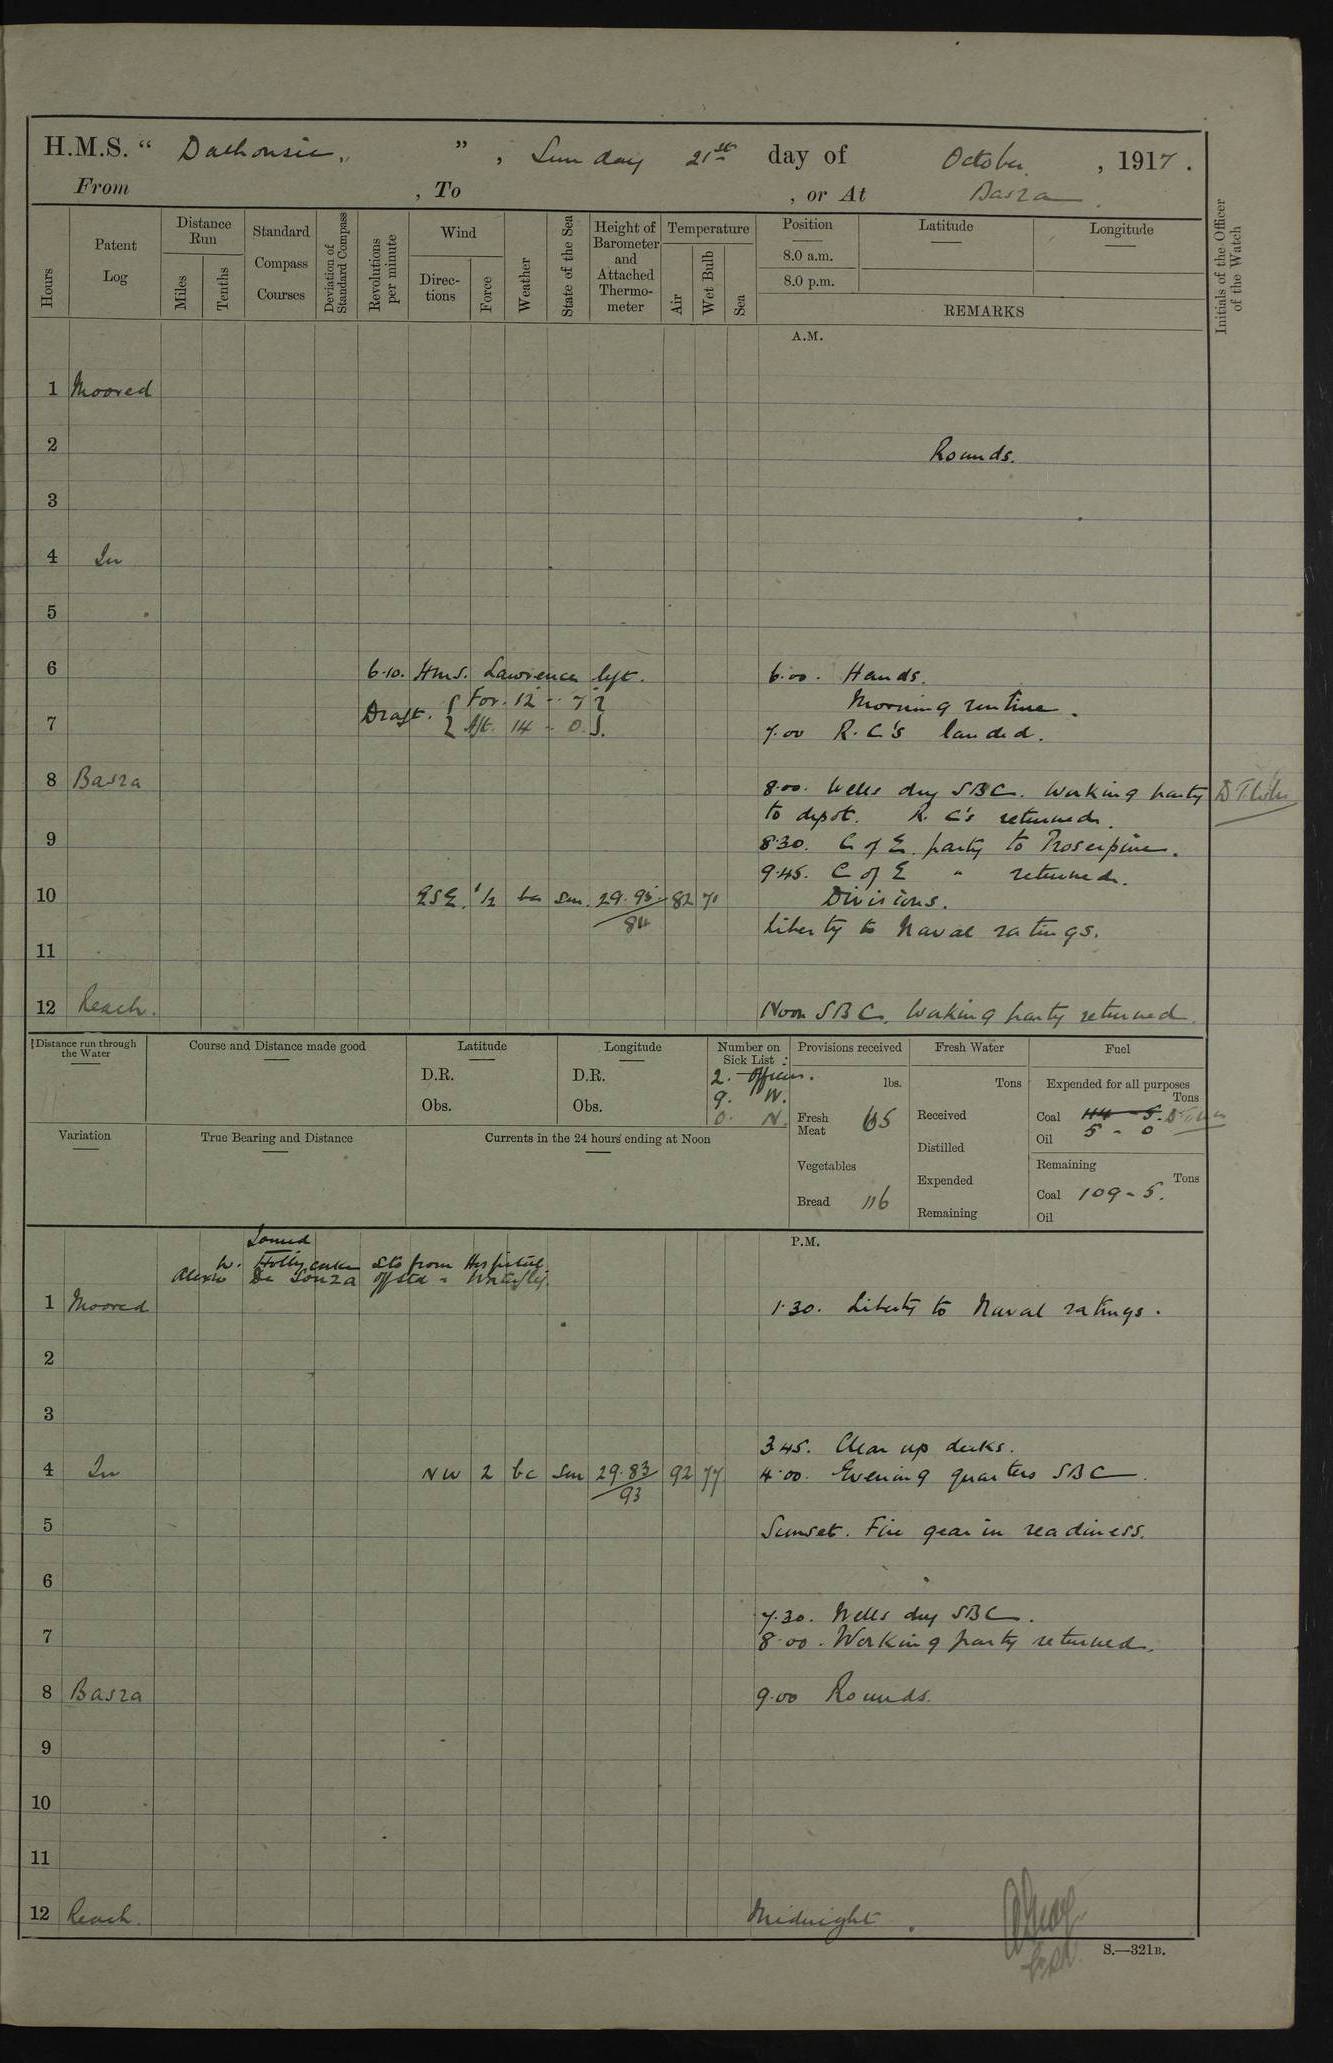 H.M.S. “ Dalhousie, ” , Sunday 21st day of October , 1917.
From , To , or At Basra.
Hours
Patent Log
Distance Run
Miles
Tenths
Standard Compass Courses
Deviation of Standard Compass
Revolutions per minute
Wind
Directions
Force
Weather
State of the Sea
Height of Barometer and Attached Thermometer
Temperature
Air
Wet Bulb
Sea
Position
8.0 a.m.
8.0 p.m.
Latitude
Longitude
REMARKS
Initials of the Officer of the Watch
A.M.
1 Moored
2 Rounds.
3
4 In
5
6 6.10. H.M.S. Lawrence left. 6.00. Hands.
Draft. { For. 12 - 7 } Morning routine.
7 { Aft. 14 - 0 } 7.00 R.C's landed.
8 Basra 8.00. Wells dry SBC. Working party
to depot. R.C's returned.
9 8.30. C of E. party to Proserpine.
9.45. C of E " returned.
10 ESE. 1/2 bc Sm. 29.95 82 71 Divisions.
84 Liberty to Naval ratings.
11
12 Reach. Noon SBC. Working party returned.
Distance run through the Water
Course and Distance made good
Latitude
D.R.
Obs.
Longitude
D.R.
Obs.
Number on Sick List :
2. Officers.
9. W.
0. N.
Provisions received
lbs.
Fresh Meat 65
Vegetables
Bread 116
Fresh Water
Tons
Received
Distilled
Expended
Remaining
Fuel
Expended for all purposes
Tons
Coal 114 - 5.
Oil 5 - 0
Remaining
Tons
Coal 109 - 5.
Oil
Variation
True Bearing and Distance
Currents in the 24 hours ending at Noon
P.M.
Joined
W. Sto from Hospital.
De Souza
1 Moored 1.30. Liberty to Naval ratings.
2
3
3.45. Clear up decks.
4 In NW 2 bc Sm 29.83 92 77 4.00. Evening quarters SBC.
93
5 Sunset. Fire gear in readiness.
6
7.30. Wells dry SBC.
7 8.00. Working party returned.
8 Basra 9.00 Rounds.
9
10
11
12 Reach. Midnight.
S.—321B.